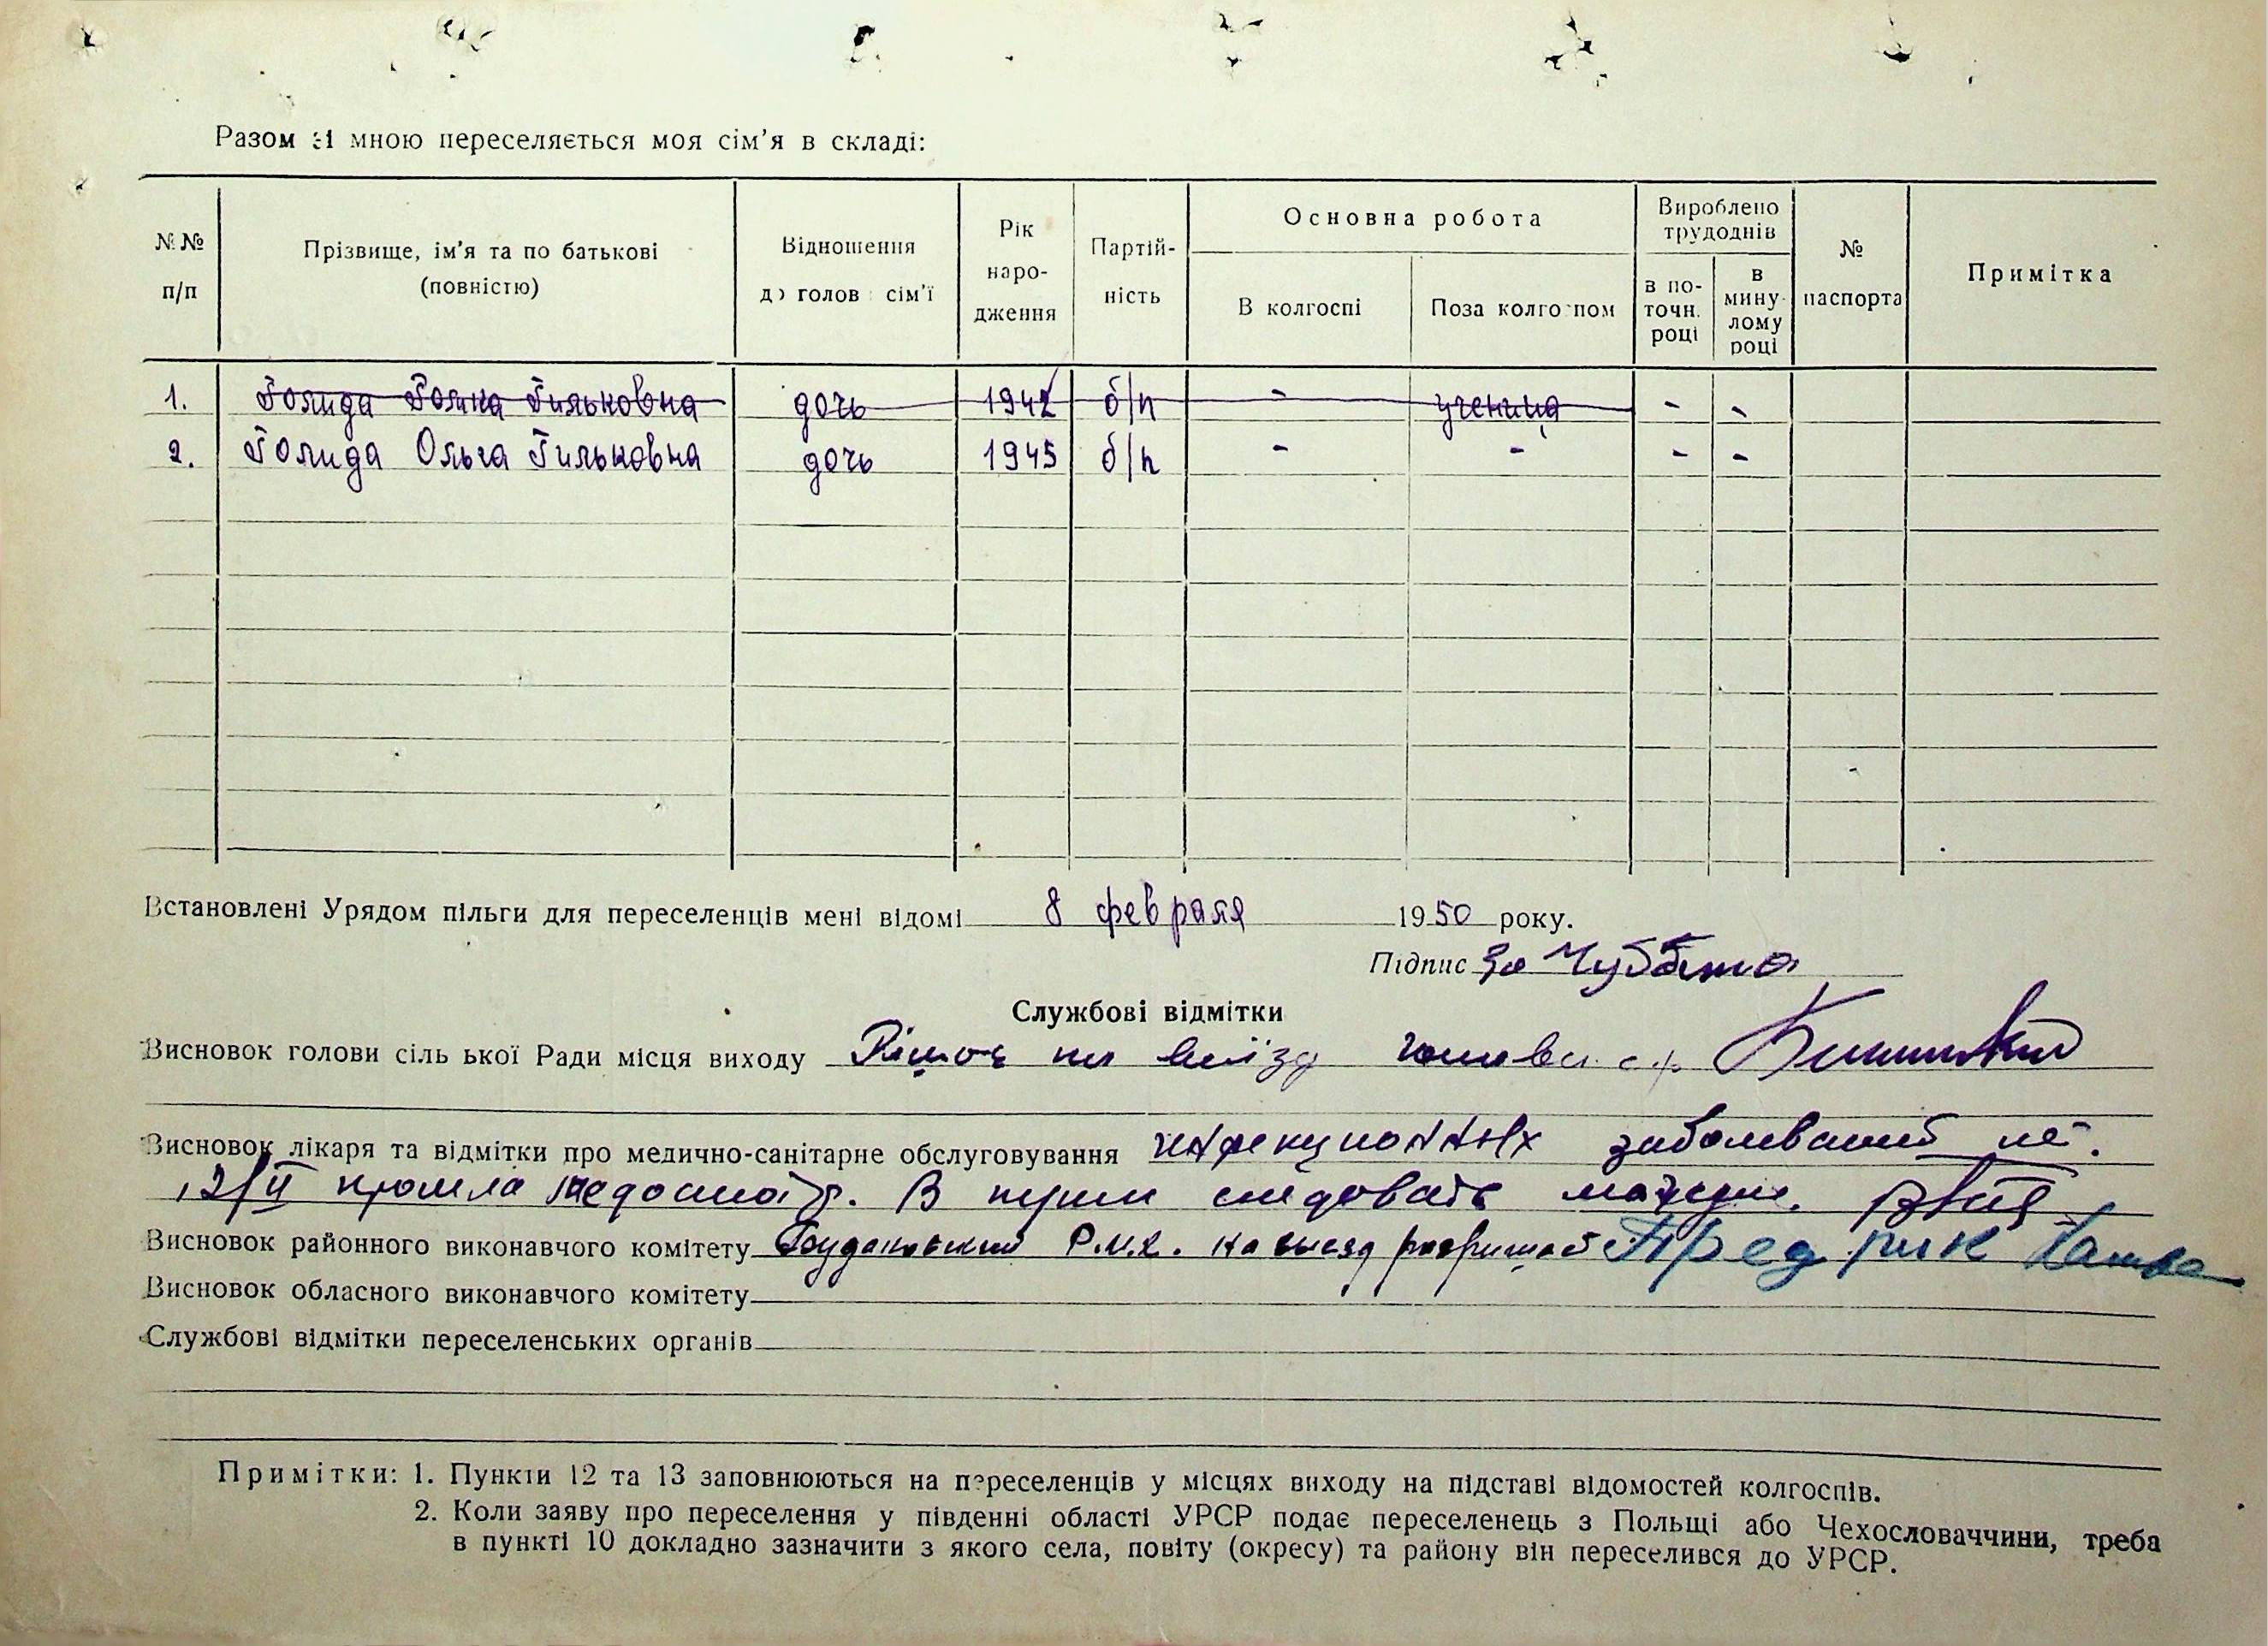 Разом зі мною переселяється моя сім'я в складі:
№№ п/п
Прізвище, ім'я та по батькові (повністю)
Відношення до голов сім'ї
Рік наро-дження
Партій-ність
Основна робота
В колгоспі
Поза колгоспом
Вироблено трудоднів
в по-точн. році
в мину-лому році
№ паспорта
Примітка
1. Голида Гильковна дочь 1942 б/п - ученица - -
2. Голида Ольга Гильковна дочь 1945 б/п - - - -
Встановлені Урядом пільги для переселенців мені відомі 8 февраля 1950 року.
Підпис за
Службові відмітки
Висновок голови сільської Ради місця виходу на виїзд голова с/р
Висновок лікаря та відмітки про медично-санітарне обслуговування инфекционных заболеваний нет.
12/II прошла медосмотр. В пути следовать может.
Висновок районного виконавчого комітету на выезд разришає Пред рик
Висновок обласного виконавчого комітету
Службові відмітки переселенських органів
Примітки: 1. Пункти 12 та 13 заповнюються на переселенців у місцях виходу на підставі відомостей колгоспів.
2. Коли заяву про переселення у південні області УРСР подає переселенець з Польщі або Чехословаччини, треба
в пункті 10 докладно зазначити з якого села, повіту (окресу) та району він переселився до УРСР.